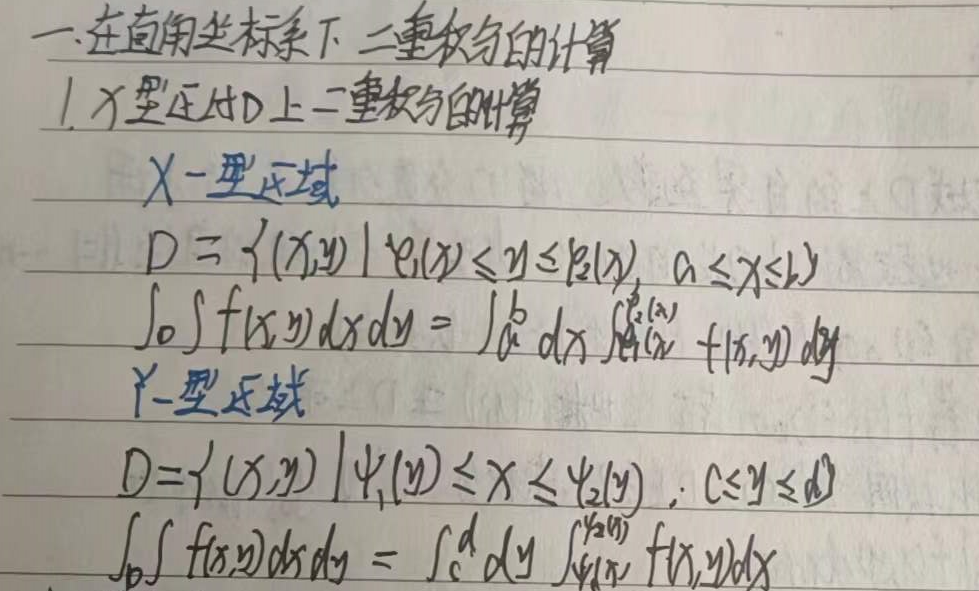 一.在直角坐标系下 二重积分的计算
1. X型区域D上二重积分的计算
X-型区域
D = {(x,y) | φ₁(x) ≤ y ≤ φ₂(x), a ≤ x ≤ b}
∫_D∫ f(x,y) dx dy = ∫_a^b dx ∫_{φ₁(x)}^{φ₂(x)} f(x,y) dy
Y-型区域
D = {(x,y) | ψ₁(y) ≤ x ≤ ψ₂(y), c ≤ y ≤ d}
∫_D∫ f(x,y) dx dy = ∫_c^d dy ∫_{ψ₁(x)}^{ψ₂(y)} f(x,y) dx